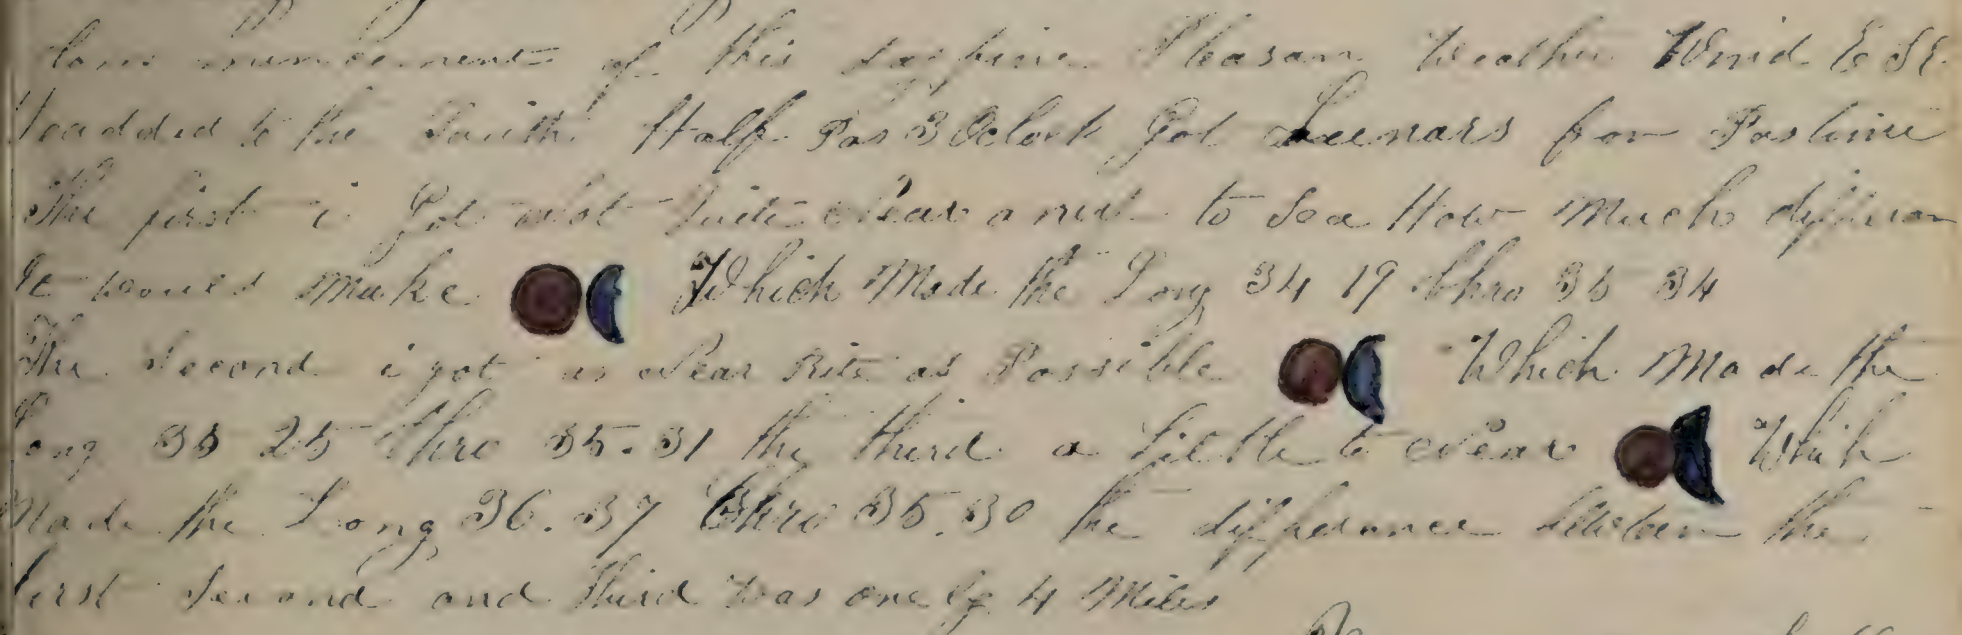 Commencement of this daytime Pleasan Weather Wind E SE
headded to the South Half Pas 3 Oclock Got Leenars for Pastime
the first i Got not Quite Near a nuf to Sea How Much differan
it would make Which Made the Long 34 19 Chro 35 34
The Second i got as Near Rite as Possible Which Made the
Long 35 25 Chro 35.31 the third a Little to Near Whih
Made the Long 36.37 Chro 35.30 the differance between the
first Second and third was onely 4 Miles